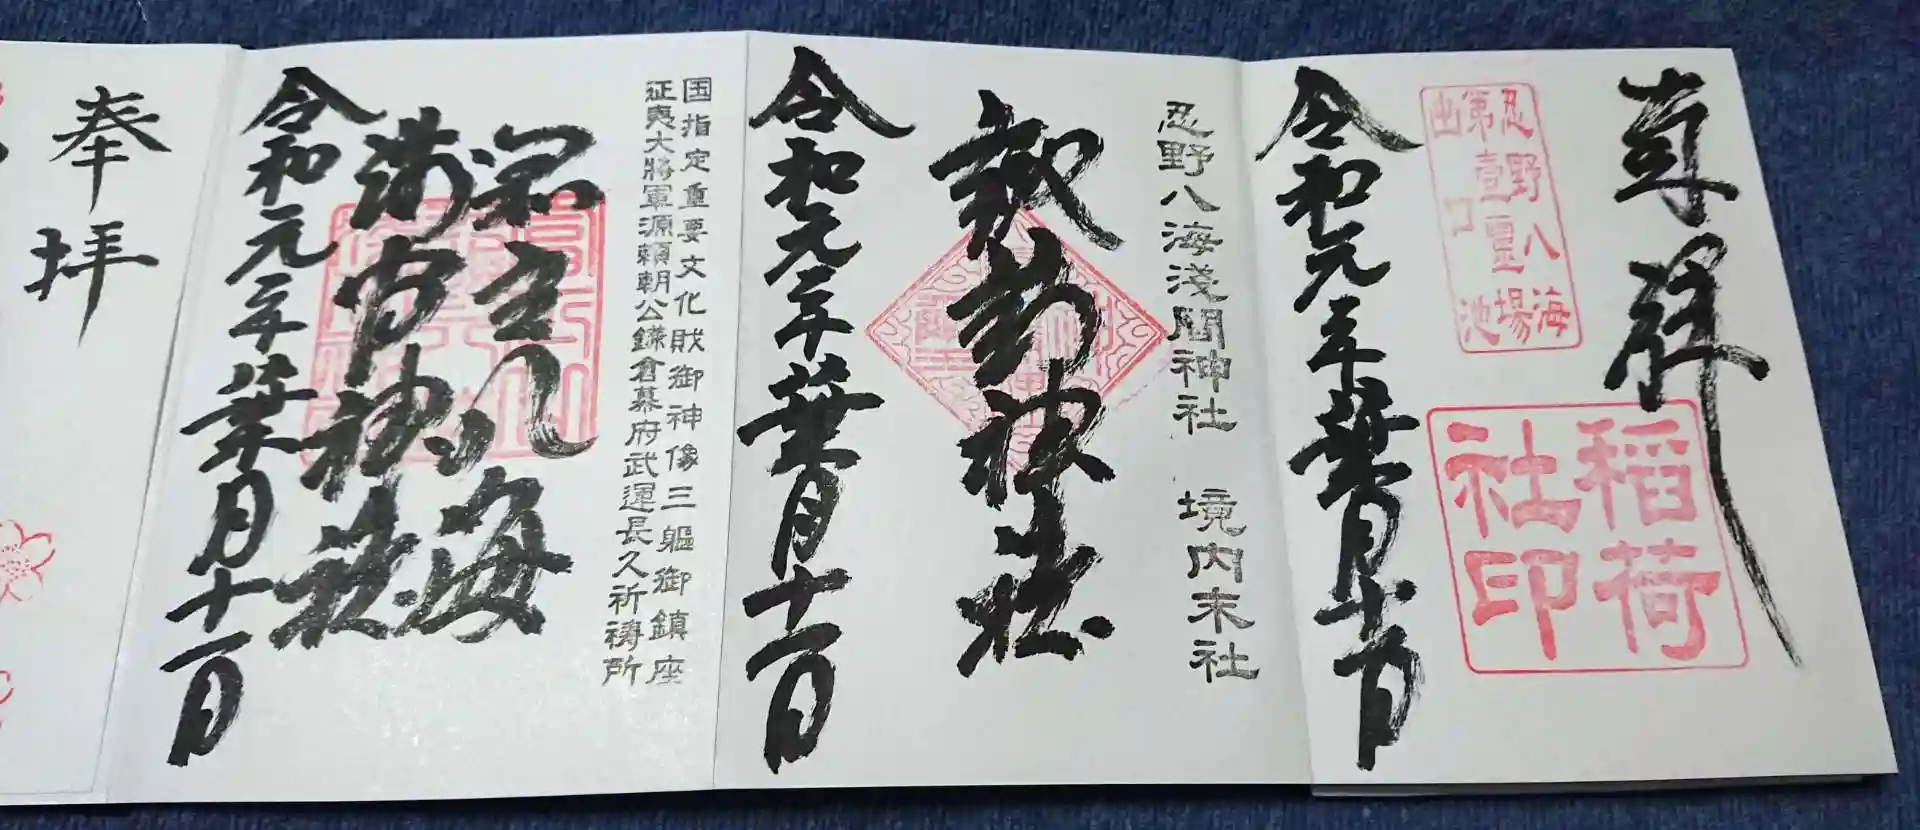 忍野八海
第壹靈場
出口池
稲荷
社印
令和元年葉月十一日
忍野八海淺間神社 境内末社
諏訪神社
令和元年葉月十一日
国指定重要文化財御神像三軀御鎮座
征夷大將軍源頼朝公鎌倉幕府武運長久祈祷所
八海
浅間神社
令和元年葉月十一日
奉拝